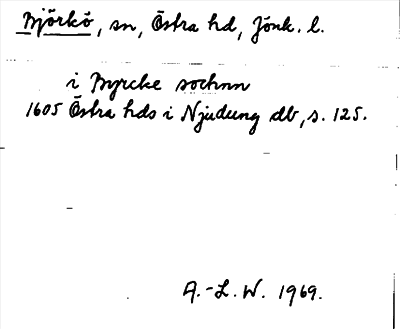 Björkö, sn, Östra hd, Jönk. l.
i Byrcke sochnn
1605 Östra hds i Njudung db, s. 125.
A.-L. W. 1969.